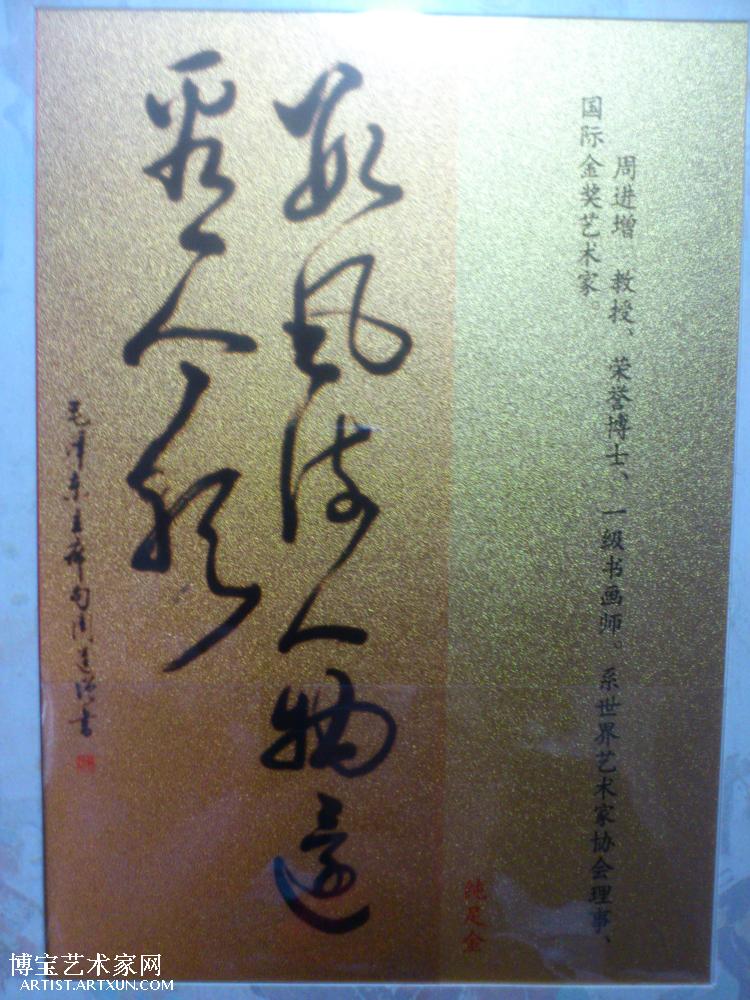 周进增 教授、荣誉博士、一级书画师。系世界艺术家协会理事、
国际金奖艺术家。
純足金
数风流人物還
看今朝
毛泽东主席句周进增书
博宝艺术家网
ARTIST.ARTXUN.COM